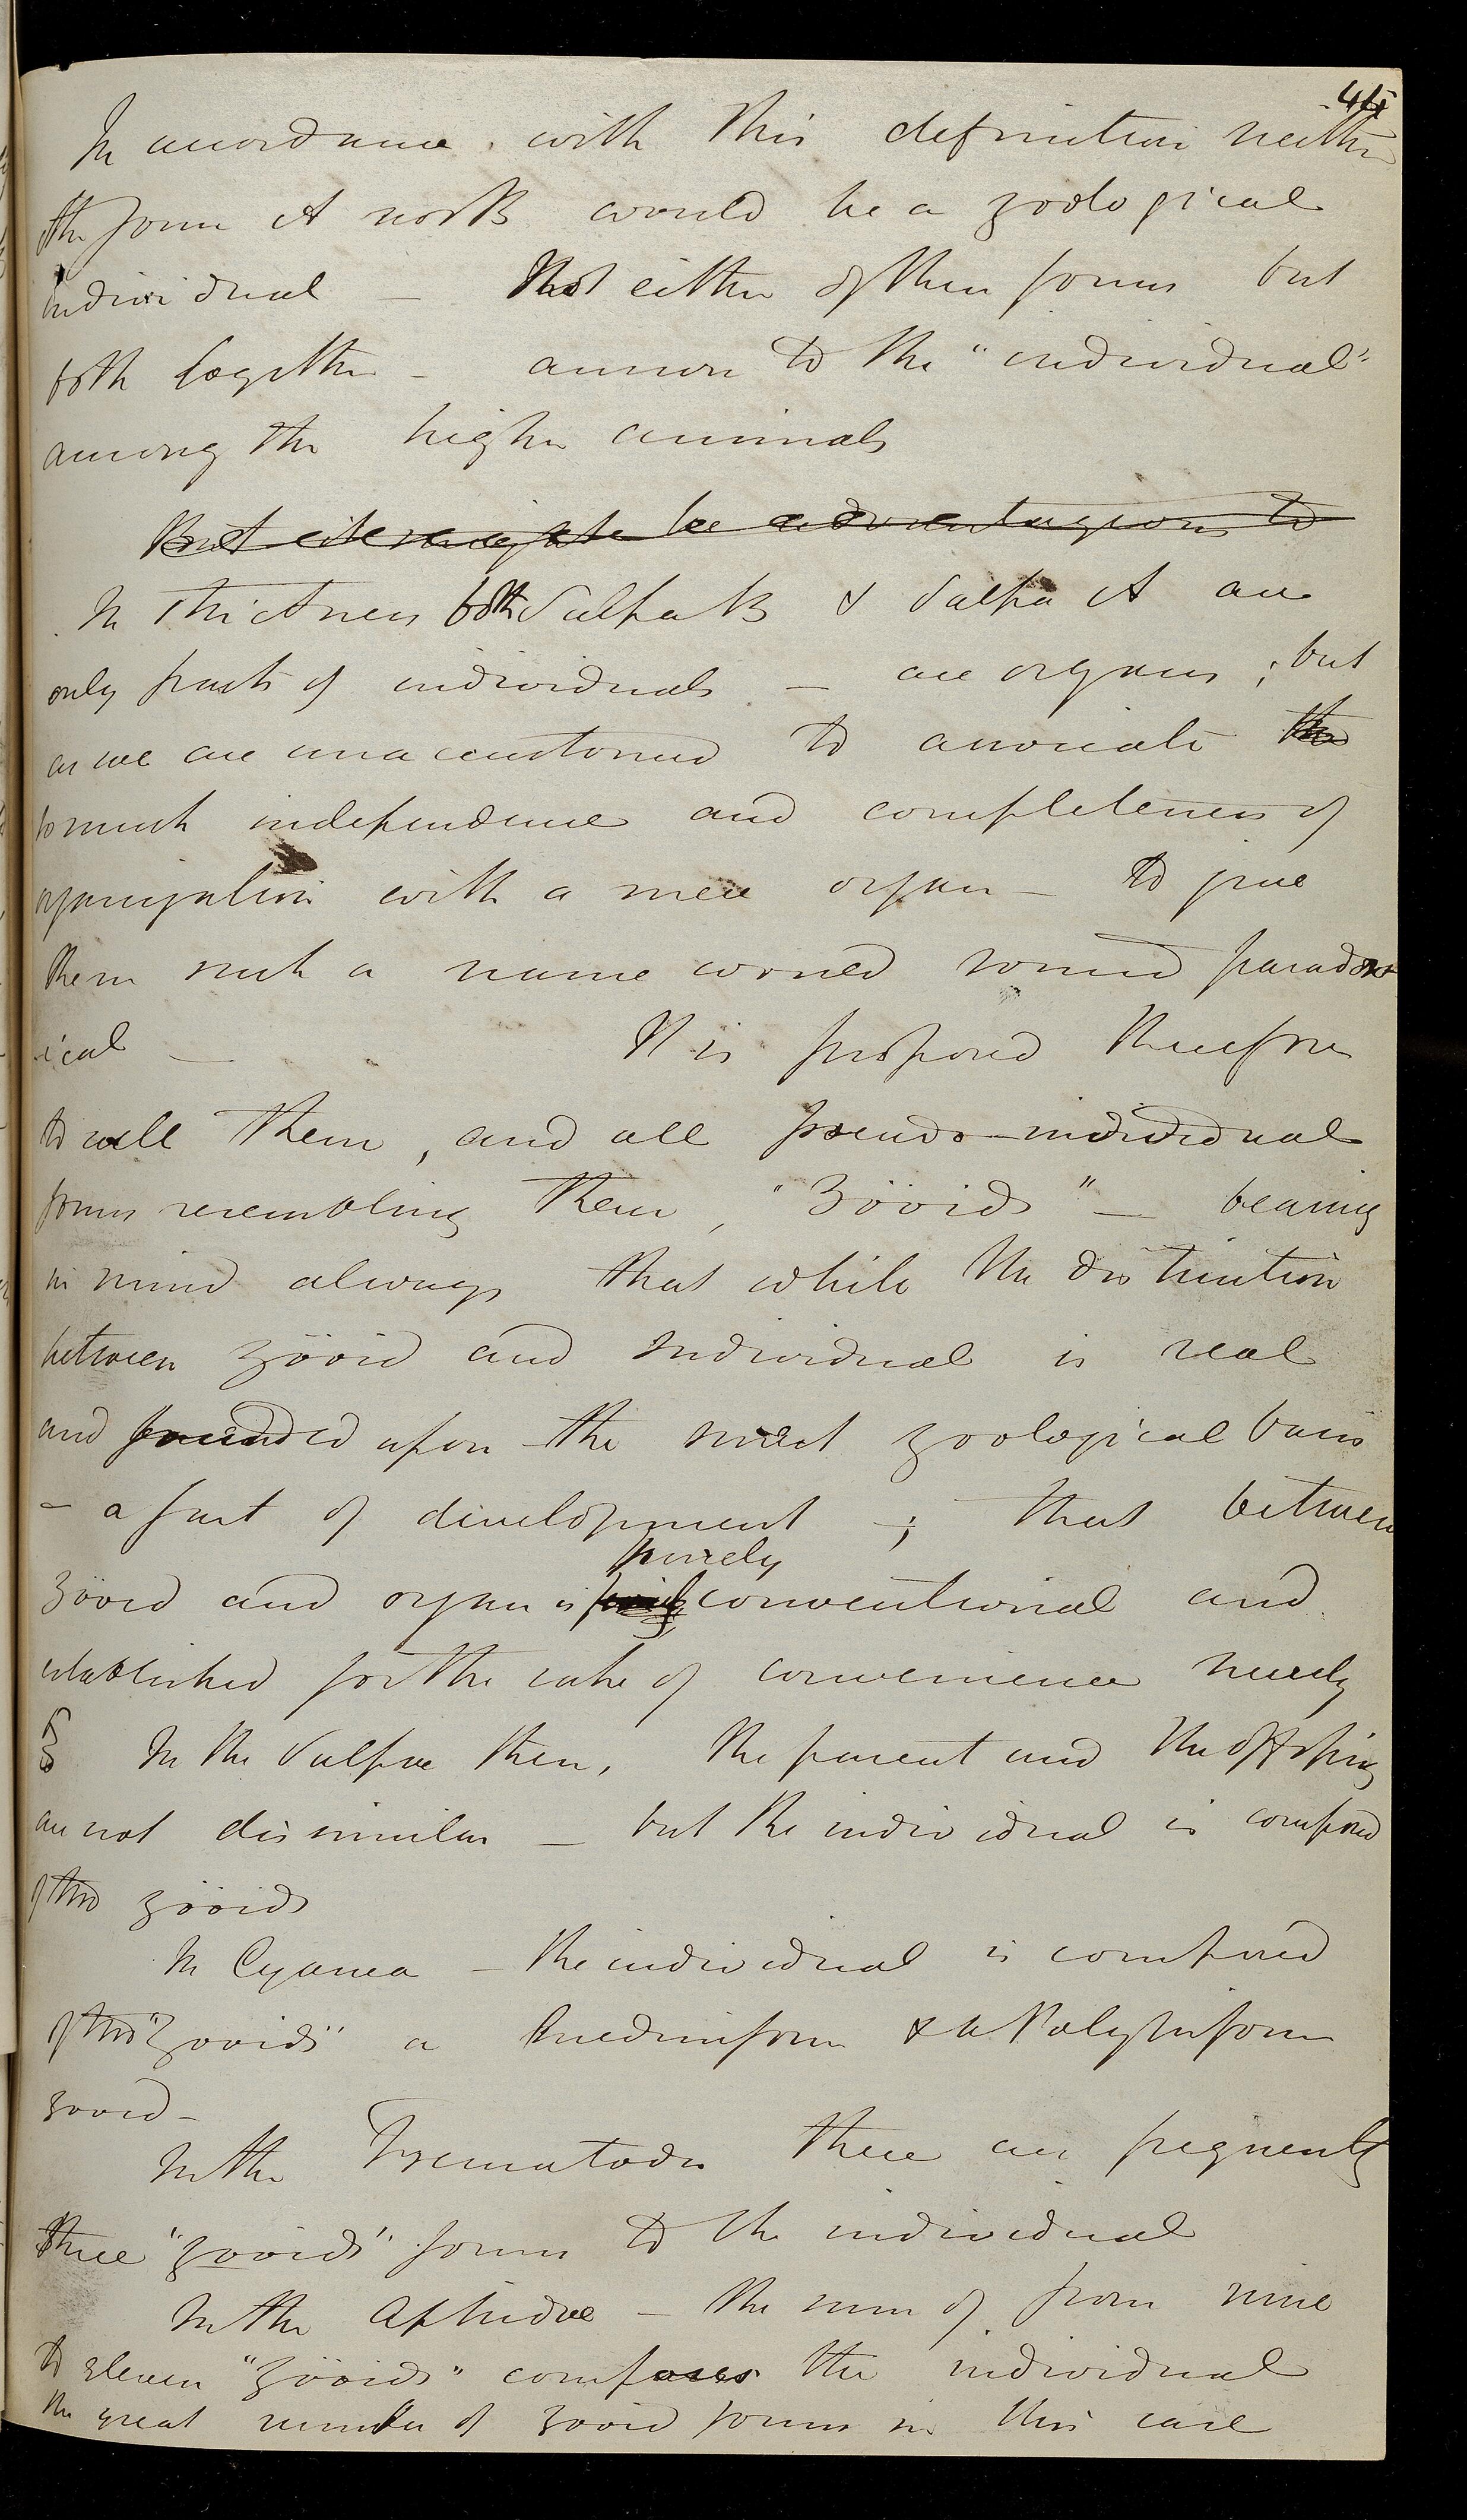 44
In accordance with this definition neither
the form A nor B would be a zoological
individual — Not either of these forms but
both together — answer to the "individual"
among the higher animals
But it might be advantageous to
In strictness both Salpa B & Salpa A are
only parts of individuals — are organs ; but
as we are unaccustomed to associate
so much independence and completeness of
organization with a mere organ — to give
them such a name would sound paradox-
ical — It is proposed therefore
to call them, and all pseudo-individual
forms resembling them, "Zöoids" — bearing
in mind always that while the distinction
between zöoid and individual is real
and founded upon the surest zoological basis
— a fact of development — ; that between
purely
zöoid and organ is conventional and
established for the sake of convenience merely
In the Salpae then, the parent and the offspring
are not dissimilar — but the individual is composed
of two zöoids
In Cyanea — the individual is composed
of two "zooids" a Medusiform & a Polypiform
zooid —
In the Trematoda there are frequently
three "zooids" forms to the individual
In the Aphidae — the sum of from nine
to eleven "zöoids" composes the individual
the great number of zooid forms in this case